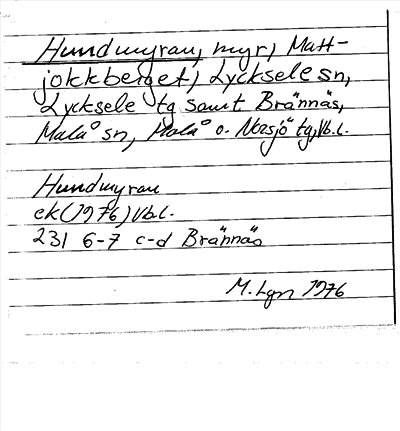 Hundmyran, myr, Matt-
jokkberget, Lycksele sn,
Lycksele tg samt Brännäs,
Malå sn, Malå o. Norsjö tg, Vb.l.
Hundmyran
ek (1976) Vb.l.
23I 6-7 c-d Brännäs
M. Lgn 1976